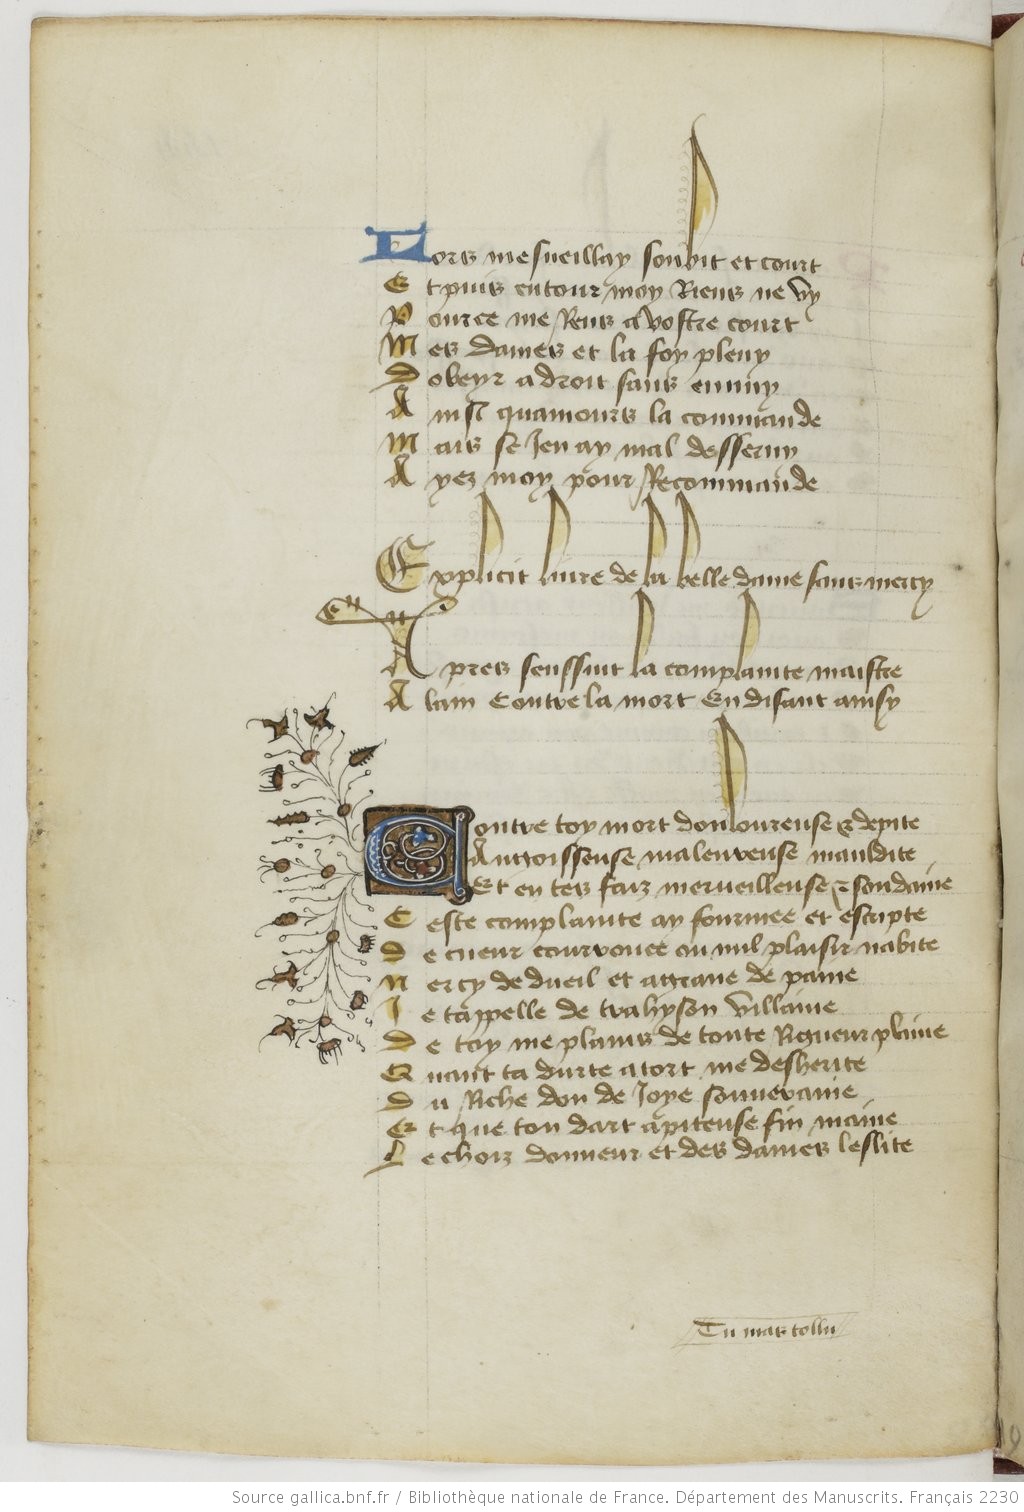 Lors mesueillay soubit et court
Et puis entour moy Riens ne vy
Pource me Rens a vostre court
Mes dames et la foy pleny
Dobeyr a droit sans ennuy
Ainsi quamours la commande
Mais se Jen ay mal desseruy
Ayez moy pour Recommande
Explicit liure de la belle dame sans mercy
Apres senssuit la complainte maistre
Alain Contre la mort En disant ainsy
Contre toy mort douloureuse & depite
Angoisseuse maleureuse mauldite
Et en tes faiz merueilleuse & soudaine
Ceste complainte ay fourmee et escripte
De cueur courrouce ou nul plaisir nabite
Nercy de dueil et aggraue de paine
Je tappelle de trahyson villaine
De toy me plains de toute Rigueur plaine
Quant ta durte a tort me desherite
Du Riche don de Joye souueraine
Et que ton dart a piteuse fin maine
Le choiz donneur et des dames leslite
Tu mas tollu
Source gallica.bnf.fr / Bibliothèque nationale de France. Département des Manuscrits. Français 2230